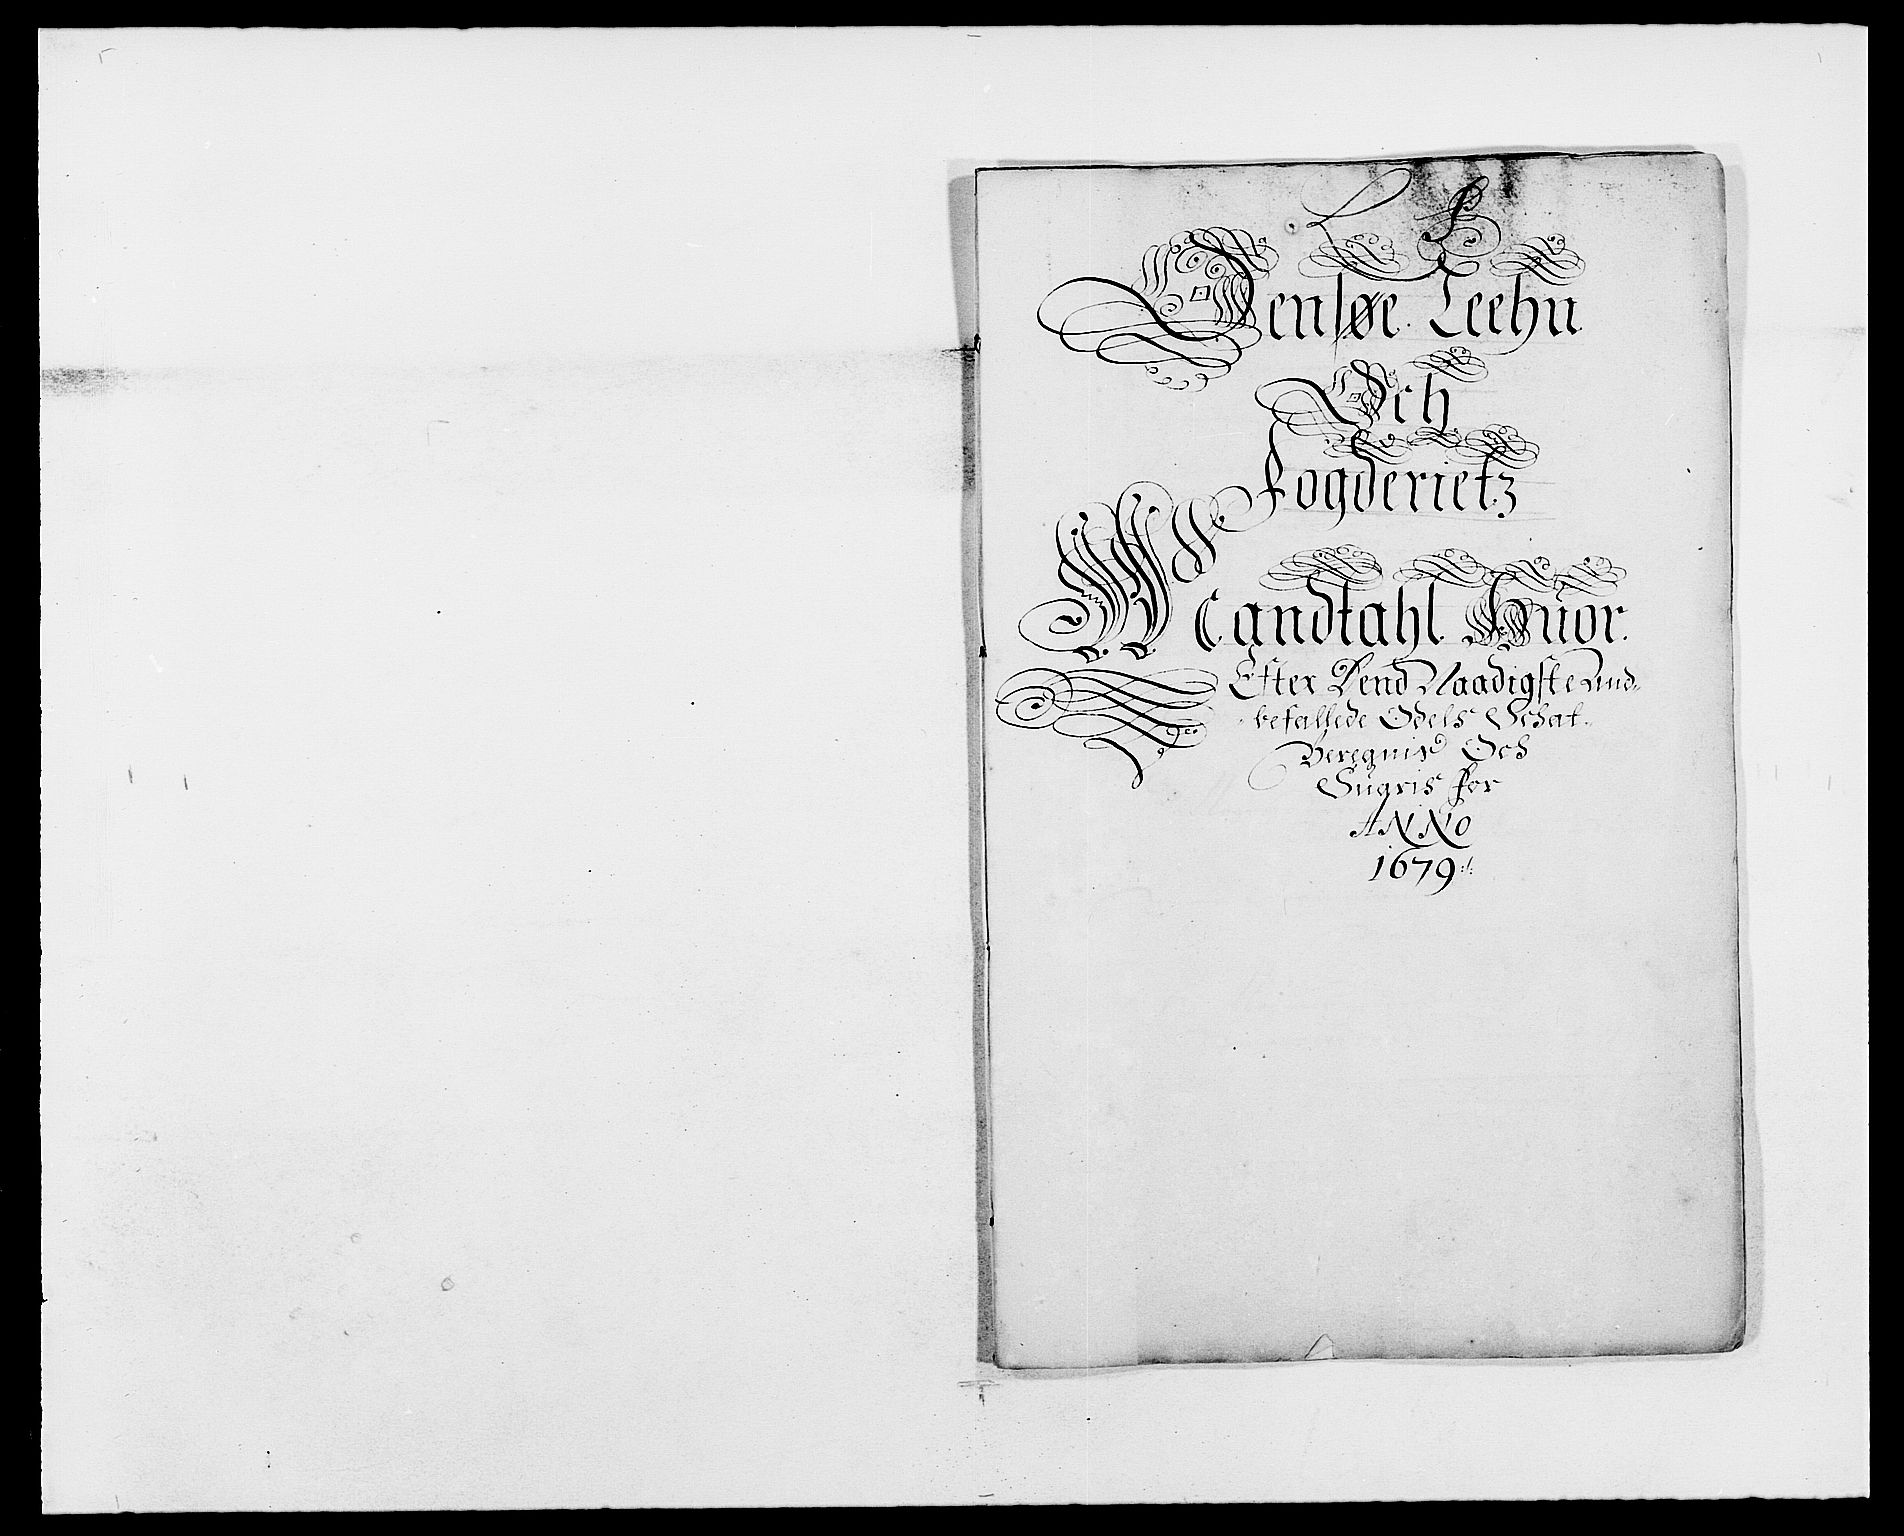 Jensøe Leehn
Och
Fogderietz
Mandtahl Huor
Efter Dend Naadigste and-
befallede Odels Schat
Beregnis Och
Sugris for
ANNO
1679